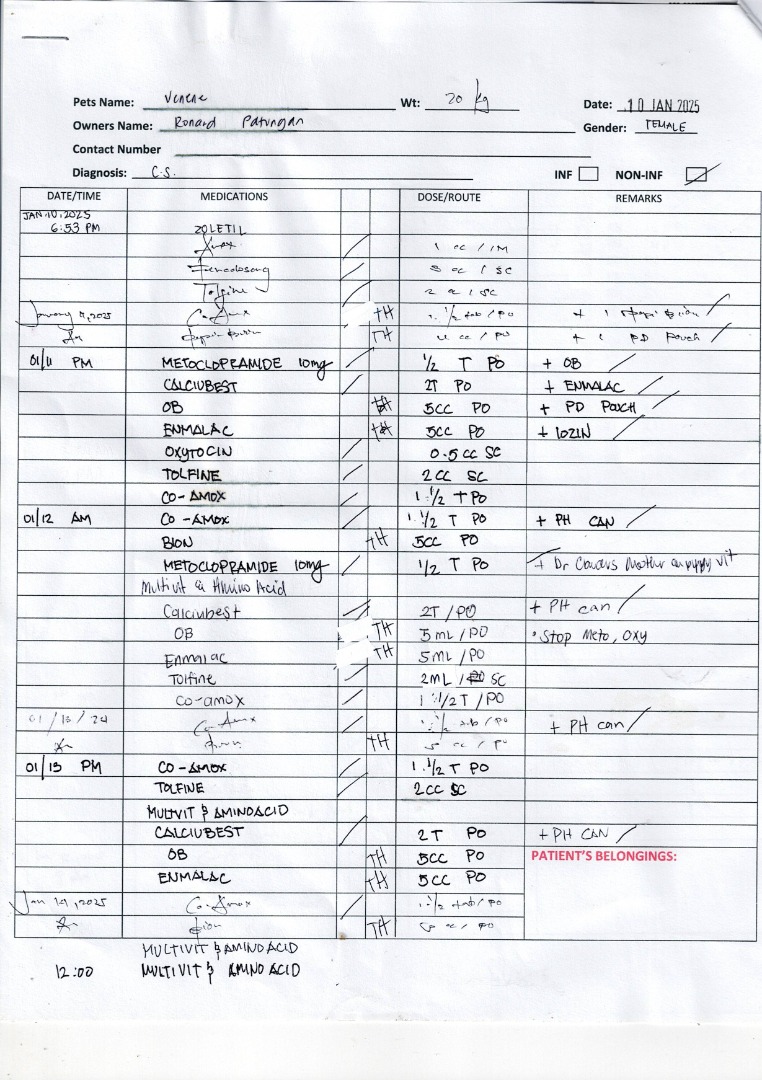 Pets Name: Venene Wt: 20 kg Date: 10 JAN 2025
Owners Name: Ronard Patungan Gender: FEMALE
Contact Number
Diagnosis: C.S. INF NON-INF
DATE/TIME MEDICATIONS DOSE/ROUTE REMARKS
JAN.10.2025
6:53 PM ZOLETIL
1 cc / IM
cc / SC
Tolfine 2 cc / SC
Co-Amox TH 1 1/2 tab / PO + 1
TH cc / PO + 1 PD Pouch
01/11 PM METOCLOPRAMIDE 10mg 1/2 T PO + OB
CALCIUBEST 2T PO + ENMALAC
OB TH 5CC PO + PD POUCH
ENMALAC TH 5CC PO + IOZIN
OXYTOCIN 0.5 CC SC
TOLFINE 2 CC SC
CO-AMOX 1 1/2 T PO
01/12 AM CO-AMOX 1 1/2 T PO + PH CAN
BION TH 5CC PO
METOCLOPRAMIDE 10mg 1/2 T PO + Dr Mother
Multivit & Amino Acid
Calciubest 2T / PO + PH can
OB TH 5 mL / PO • Stop Meto, Oxy
Enmalac TH 5mL / PO
Tolfine 2mL / SC
Co-amox 1 1/2 T / PO
01 / 13 / 24 Co-Amox 1 1/2 tab / PO + PH can
TH 5 cc / PO
01/13 PM CO-AMOX 1 1/2 T PO
TOLFINE 2CC SC
MULTIVIT & AMINOACID
CALCIUBEST 2T PO + PH CAN
OB TH 5CC PO PATIENT'S BELONGINGS:
ENMALAC TH 5CC PO
Jan 14, 2025 Co-Amox 1 1/2 tab / PO
Bion TH 5 cc / PO
MULTIVIT & AMINO ACID
12:00 MULTIVIT & AMINO ACID